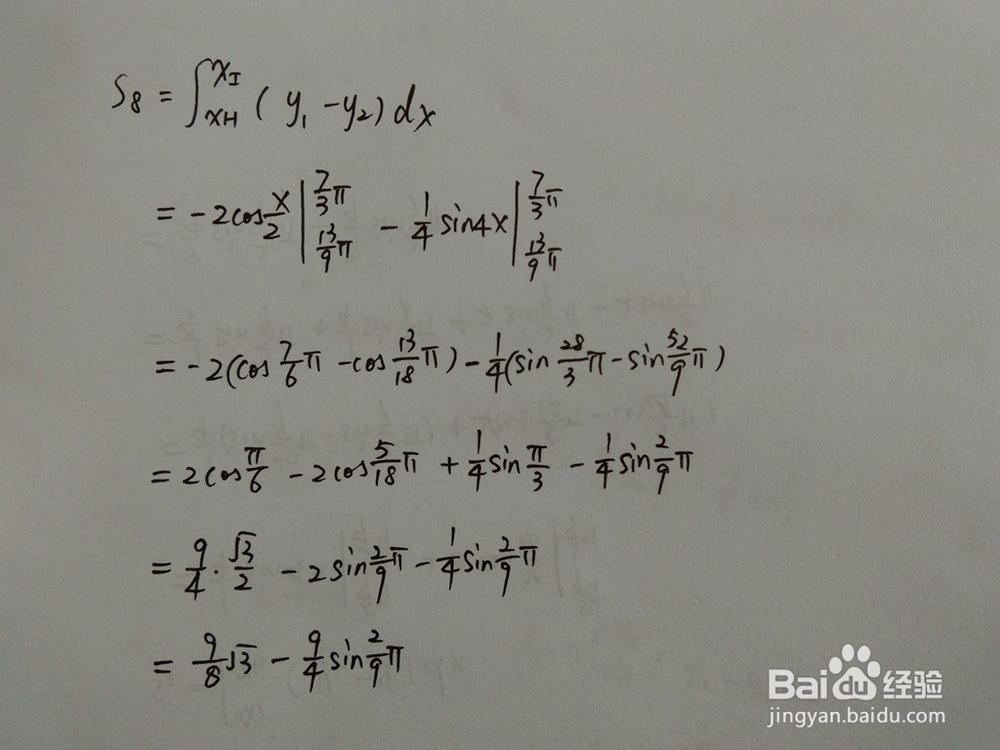 S₈ = ∫_{xH}^{xI} (y₁ - y₂) dx
= -2cos x/2 |_{13/9 π}^{7/3 π} - 1/4 sin4x |_{13/9 π}^{7/3 π}
= -2(cos 7/6 π - cos 13/18 π) - 1/4 (sin 28/3 π - sin 52/9 π)
= 2cos π/6 - 2cos 5/18 π + 1/4 sin π/3 - 1/4 sin 2/9 π
= 9/4 · √3/2 - 2sin 2/9 π - 1/4 sin 2/9 π
= 9/8 √3 - 9/4 sin 2/9 π
Baidu经验
jingyan.baidu.com